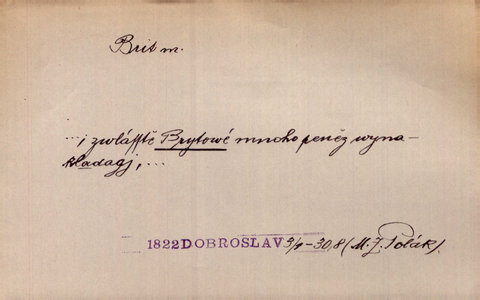 Brit m.
... i zwlásstě Brytowé mnoho peněz wyna-
kládagj, ...
1822 DOBROSLAV 3/4 - 30,8 (M. Z. Polák).